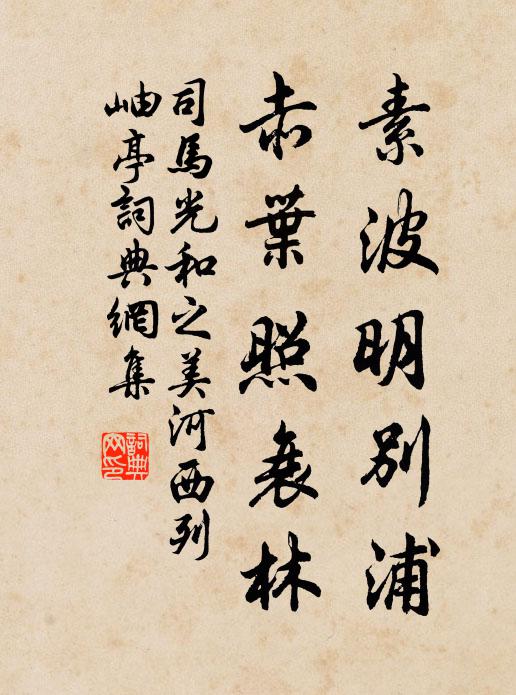 素波明別浦
赤葉照衰林
司馬光和之美河西列
岫亭詞典網集
詞典
网印